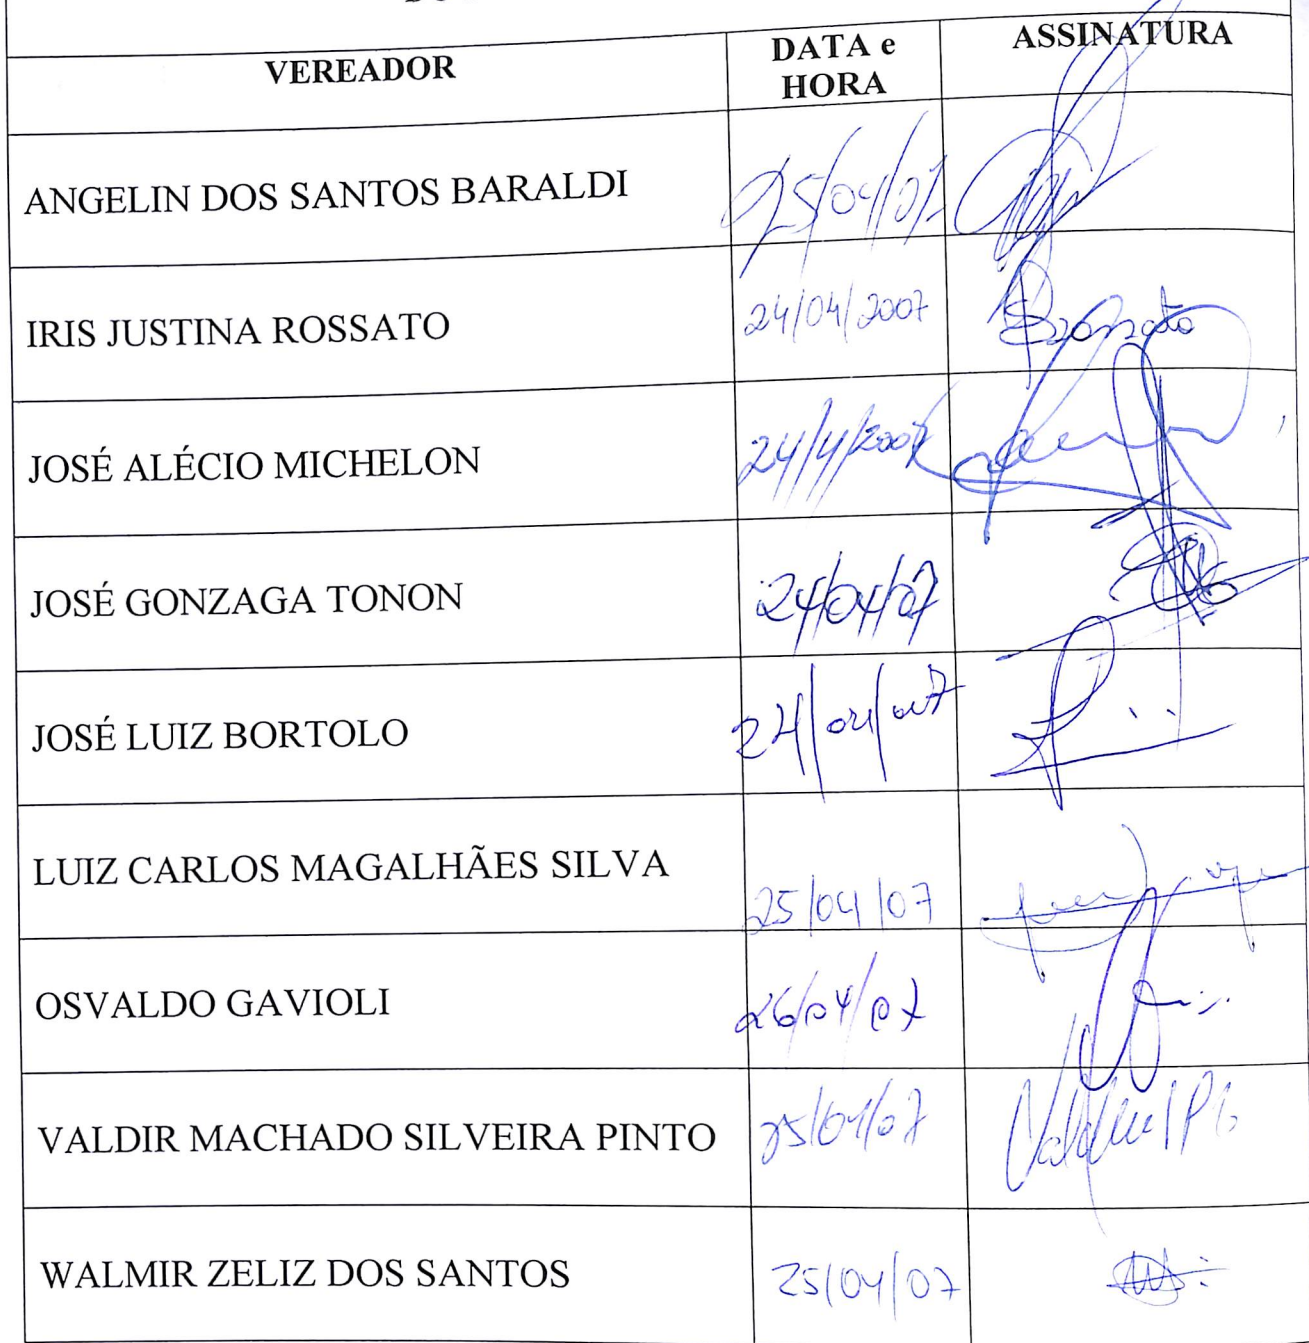 VEREADOR
DATA e
HORA
ASSINATURA
ANGELIN DOS SANTOS BARALDI 25/04/07
IRIS JUSTINA ROSSATO 24/04/2007
JOSÉ ALÉCIO MICHELON 24/4/2007
JOSÉ GONZAGA TONON 24/04/07
JOSÉ LUIZ BORTOLO 24/04/007
LUIZ CARLOS MAGALHÃES SILVA 25/04/07
OSVALDO GAVIOLI 26/04/07
VALDIR MACHADO SILVEIRA PINTO 25/04/07
WALMIR ZELIZ DOS SANTOS 25/04/07